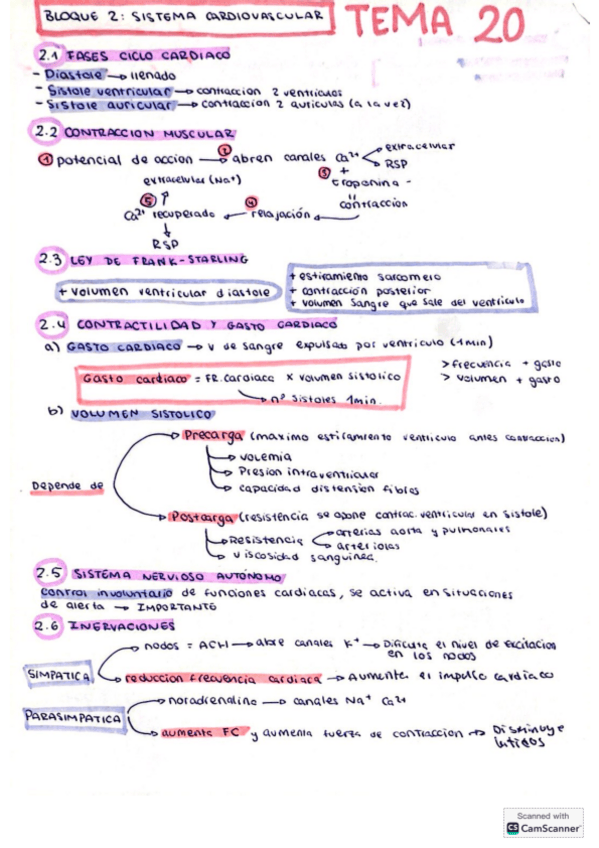 BLOQUE 2: SISTEMA CARDIOVASCULAR
TEMA 20
2.1 FASES CICLO CARDIACO
- Diastole → llenado
- Sistole ventricular → contraccion 2 ventriculos
- Sistole auricular → contraccion 2 auriculas (a la vez)
2.2 CONTRACCION MUSCULAR
① potencial de accion → ② abren canales Ca²⁺
extracelular
RSP
③ + troponina -
"
contraccion
④ relajación
Ca²⁺ recuperado
⑤ extracelular (Na⁺)
RSP
2.3 LEY DE FRANK-STARLING
+ volumen ventricular diastole
+ estiramiento sarcomero
+ contracción posterior
+ volumen sangre que sale del ventriculo
2.4 CONTRACTILIDAD Y GASTO CARDIACO
a) GASTO CARDIACO → V de sangre expulsado por ventriculo (1min)
Gasto cardiaco = FR. cardiaca x volumen sistolico
→ nº sistoles 1min.
> frecuencia + gasto
> volumen + gasto
b) VOLUMEN SISTOLICO
Depende de
Precarga (maximo estiramiento ventriculo antes contraccion)
→ volemia
→ Presion intraventricular
→ capacidad distension fibras
Postcarga (resistencia se opone contrac. ventricular en sistole)
→ Resistencia
arterias aorta y pulmonares
arteriolas
→ viscosidad sanguinea.
2.5 SISTEMA NERVIOSO AUTÓNOMO
control involuntario de funciones cardiacas, se activa en situaciones
de alerta → IMPORTANTE
2.6 INERVACIONES
SIMPATICA
nodos = ACH → abre canales K⁺ → Dificulta el nivel de excitacion
en los nodos
reduccion frecuencia cardiaca → Aumenta el impulso cardiaco
PARASIMPATICA
noradrenalina → canales Na⁺ Ca²⁺
aumenta FC y aumenta fuerza de contraccion → Disminuye
latidos
Scanned with
CS CamScanner